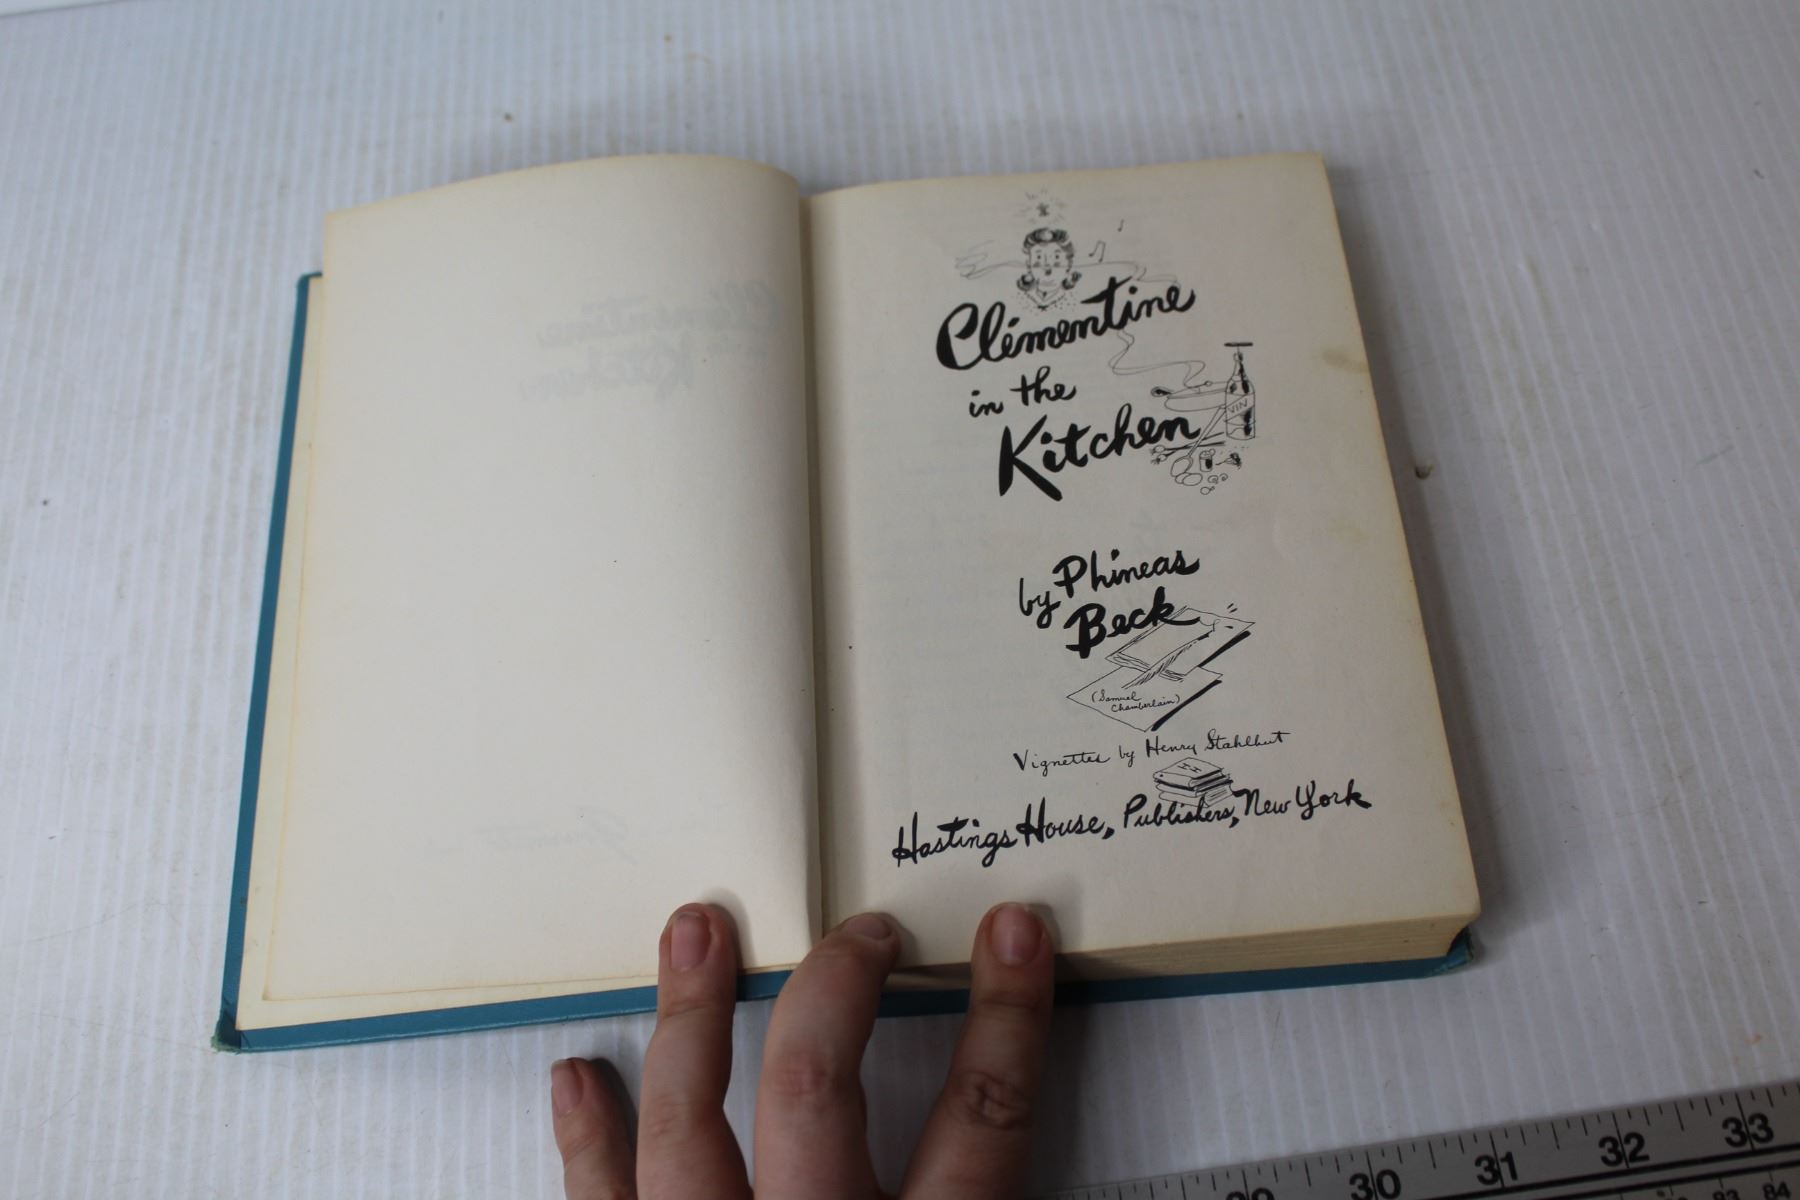 Clémentine
in the
Kitchen
VIN
by Phineas
Beck
(Samuel
Chamberlain)
Vignettes by Henry Stahlhut
HH
Hastings House, Publishers, New York
29 30 31 32 33
84